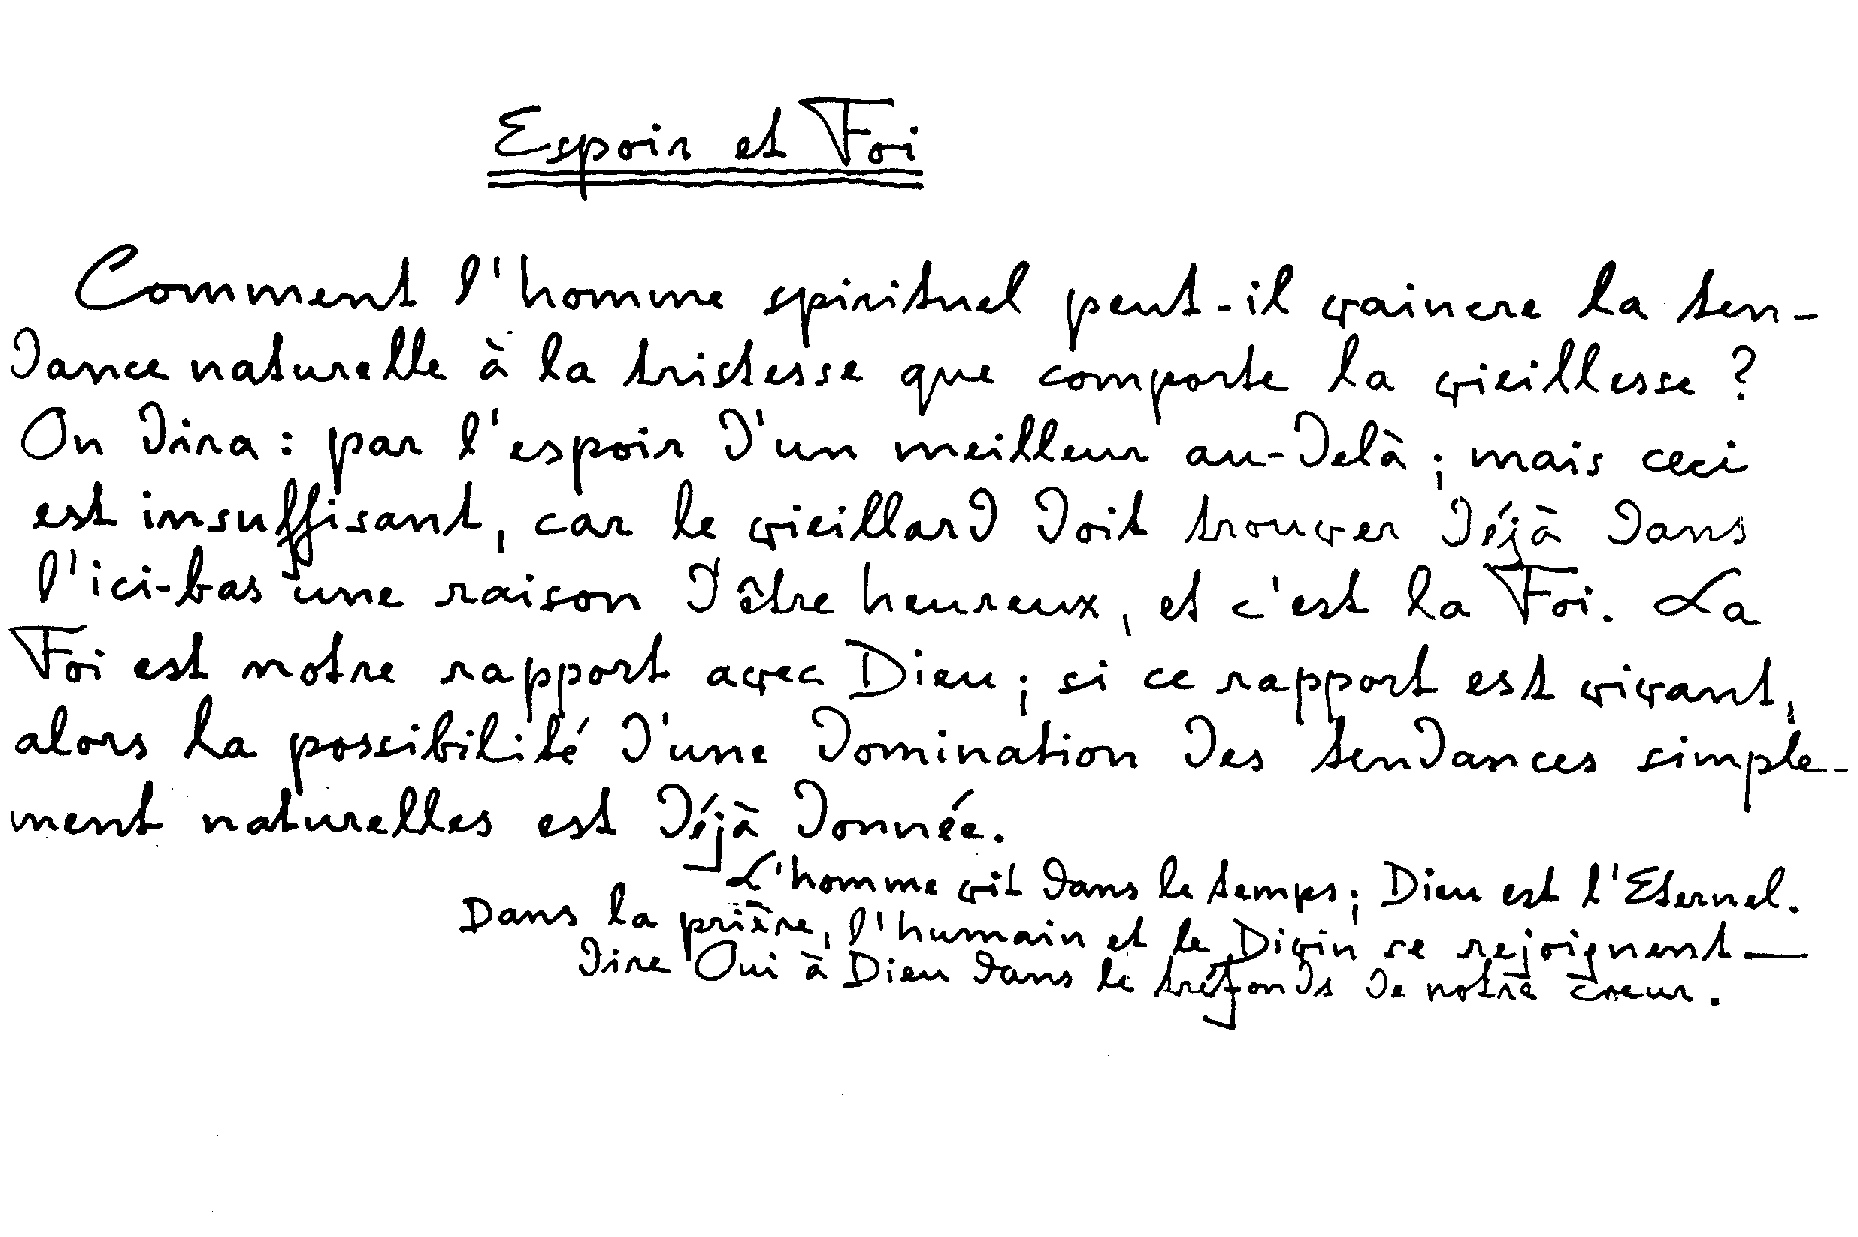 Espoir et Foi
Comment l'homme spirituel peut-il vaincre la ten-
dance naturelle à la tristesse que comporte la vieillesse ?
On dira : par l'espoir d'un meilleur au-delà ; mais ceci
est insuffisant, car le vieillard doit trouver déjà dans
l'ici-bas une raison d'être heureux, et c'est la Foi. La
Foi est notre rapport avec Dieu ; si ce rapport est vivant,
alors la possibilité d'une domination des tendances simple-
ment naturelles est déjà donnée.
L'homme vit dans le temps ; Dieu est l'Eternel.
Dans la prière, l'humain et le Divin se rejoignent —
dire Oui à Dieu dans le tréfonds de notre cœur.